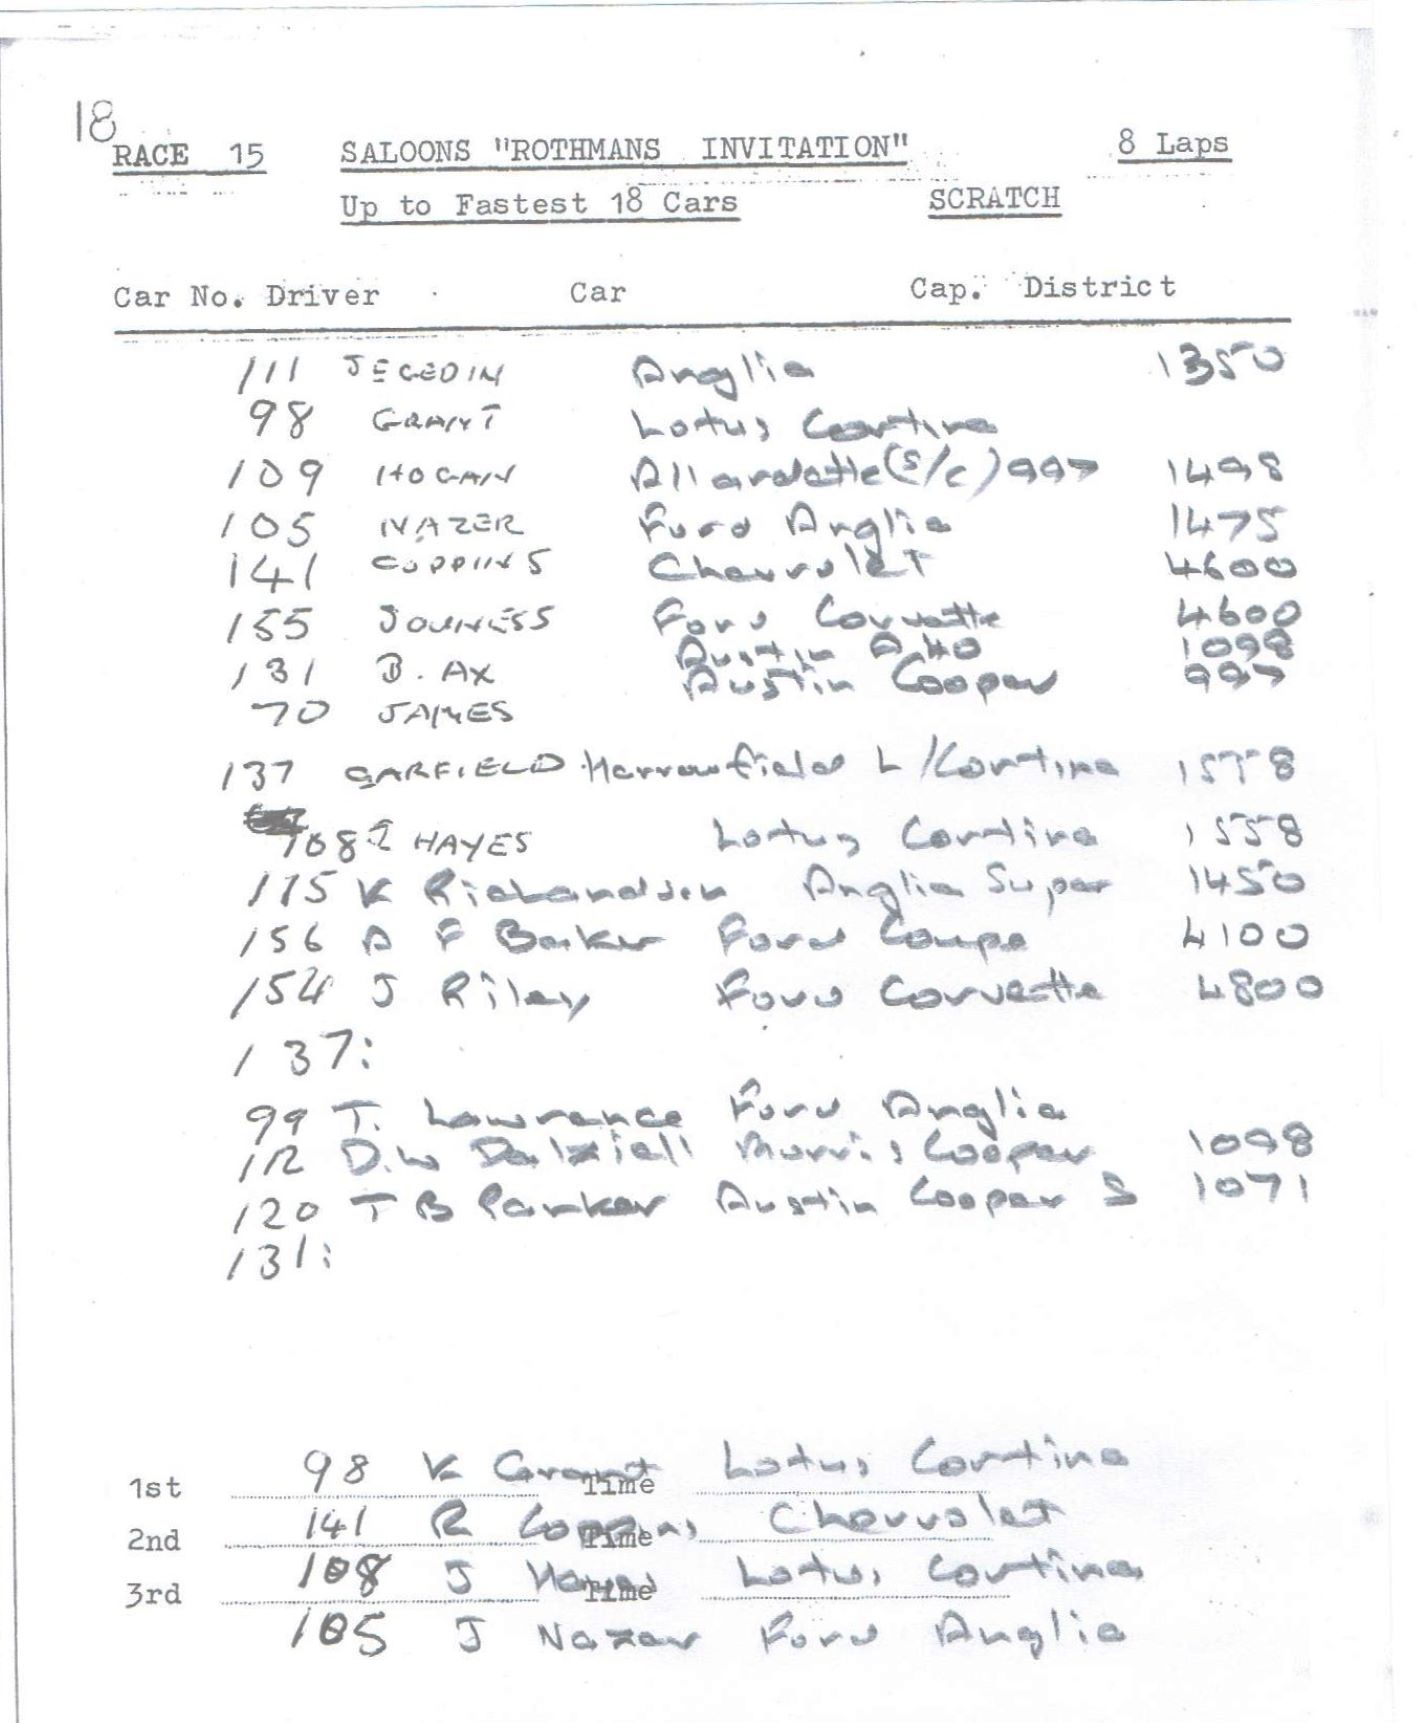 18
RACE 15 SALOONS "ROTHMANS INVITATION" 8 Laps
Up to Fastest 18 Cars SCRATCH
Car No. Driver Car Cap. District
111 JEGEDIN Anglia 1350
98 GRANT Lotus Cortina
109 HOGAN Allardette (S/C) 997 1498
105 NAZER Ford Anglia 1475
141 COPPINS Chevrolet 4600
155 Ford Corvette 4600
Austin A40 1098
131 B. AX Austin Cooper 997
70 JAMES
137 GARFIELD Harrowfield L/Cortina 1558
108 J HAYES Lotus Cortina 1558
115 K Richardson Anglia Super 1450
156 A F Barker Ford Coupe 4100
154 J Riley Ford Corvette 4800
137:
99 T. Lawrence Ford Anglia
112 D.W Dalziell Morris Cooper 1098
120 T B Parker Austin Cooper S 1071
131:
1st 98 K Grant Time Lotus Cortina
2nd 141 R Coppins Time Chevrolet
3rd 108 J Hayes Time Lotus Cortina
105 J Nazer Ford Anglia